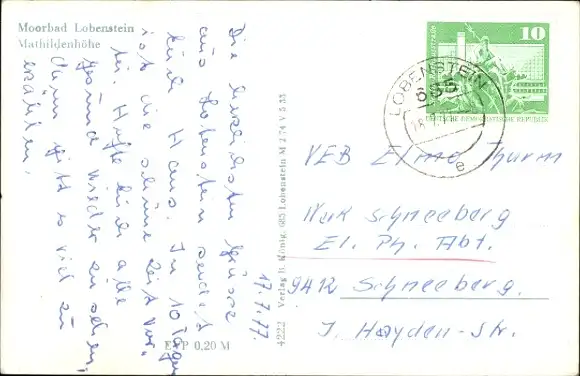 Moorbad Lobenstein
Mathildenhöhe
17.7.77.
Die herzlichsten Grüsse
aus Lobenstein sendet
Euch Hans. In 10 Tagen
ist die schöne Zeit vor-
bei. Hoffe Euch alle
gesund wieder zu sehen,
dann gibt es viel zu
erzählen.
EVP 0,20 M
4222 Verlag R. König, 685 Lobenstein M 2 74 V 8 33
10
DEUTSCHE DEMOKRATISCHE REPUBLIK
LOBENSTEIN
685
18.
e
VEB Elmo Thurm
Werk Schneeberg
El. Ph. Abt.
9412 Schneeberg.
J. Hayden-Str.